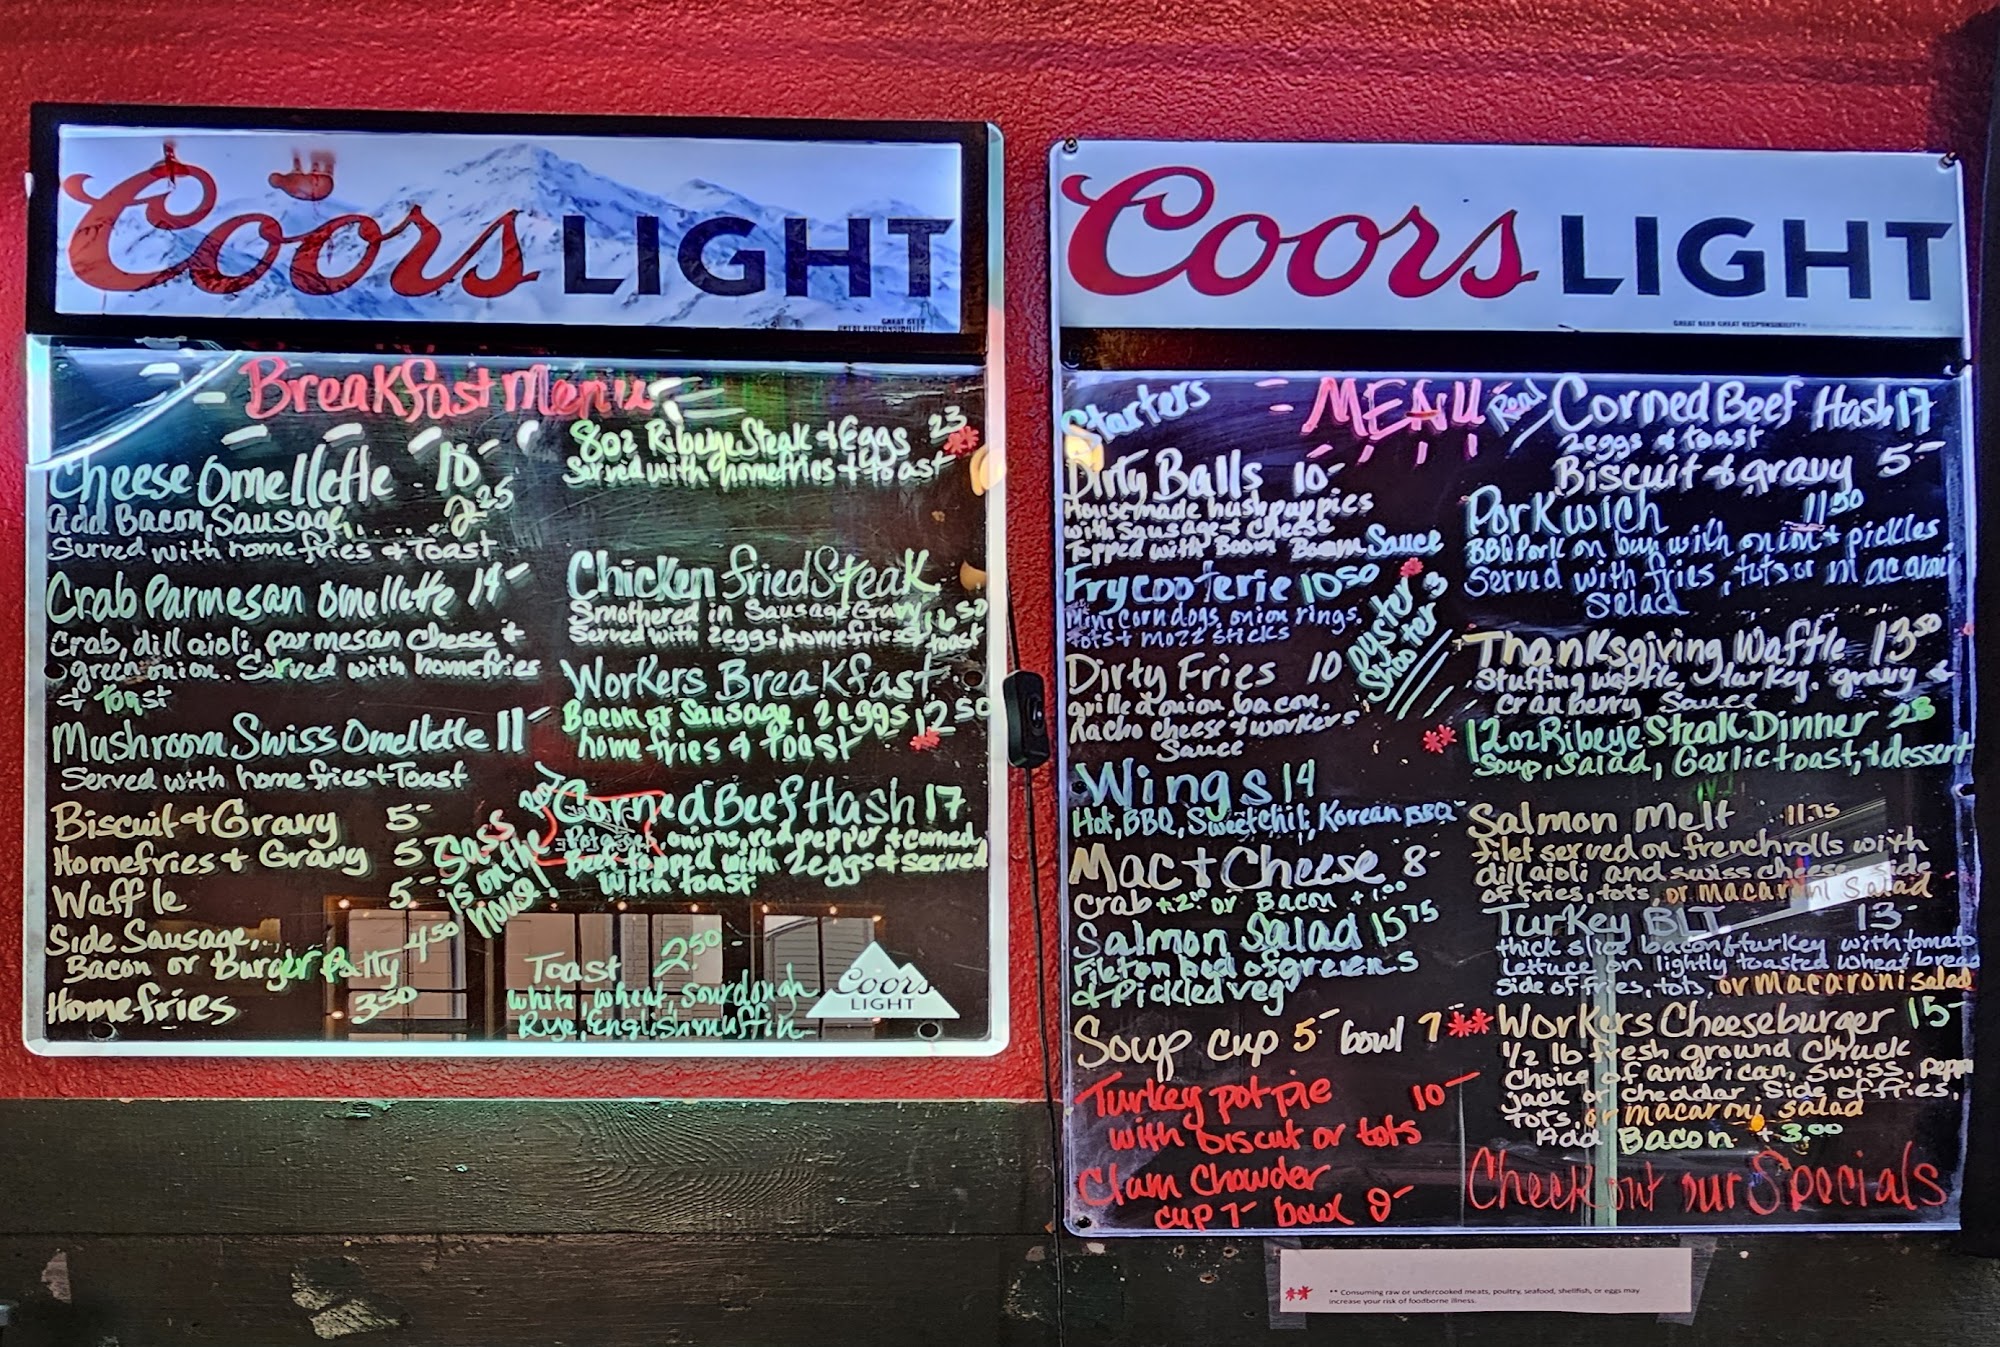 Coors LIGHT
GREAT BEER
GREAT RESPONSIBILITY
Breakfast Menu
Cheese Omellette 10-
add Bacon, Sausage..... 2.25
Served with homefries & Toast
Crab Parmesan Omellette 14-
Crab, dill aioli, parmesan cheese +
green onion. Served with homefries
+ Toast
Mushroom Swiss Omellette 11-
Served with homefries + Toast
Biscuit & Gravy 5-
Homefries & Gravy 5-
Waffle 5-
Side Sausage,
Bacon or Burger Patty 4.50
Homefries 3.50
Sass
is on the
house!
8oz Ribeye Steak & Eggs 23 **
Served with homefries + toast
Chicken fried Steak
Smothered in Sausage Gravy 16.50
Served with 2eggs, homefries + toast
Workers Breakfast
Bacon or Sausage, 2 eggs 12.50
home fries & toast **
Real
Corned Beef Hash 17
Potatoes, onions, red pepper + corned
Beef topped with 2eggs & served
with toast
Toast 2.50
white, wheat, sourdough
Rye, English muffin
Coors
LIGHT
Coors LIGHT
GREAT BEER GREAT RESPONSIBILITY
MENU
Starters
Dirty Balls 10-
Housemade hushpuppies
with Sausage & Cheese
Topped with Boom Boom Sauce
Frycooterie 10.50
Mini corndogs, onion rings.
tots + mozz sticks
** Oyster 3
Shooter
Dirty Fries 10
grilled onion, bacon.
nacho cheese & workers
Sauce
Wings 14
Hot, BBQ, Sweet chili, Korean BBQ
Mac + Cheese 8-
Crab + 2.00 or Bacon + 1.00
Salmon Salad 15.75
Filet on bed of greens
& Pickled veg
Soup cup 5- bowl 7
Turkey pot pie 10-
with biscut or tots
Clam Chowder
cup 7- bowl 9-
Real Corned Beef Hash 17
2eggs & toast
Biscuit & gravy 5-
Porkwich 11.50
BBQ Pork on bun with onion + pickles
Served with fries, tots or macaroni
Salad
Thanksgiving Waffle 13.50
Stuffing waffle, turkey, gravy &
Cranberry Sauce
** 12oz Ribeye Steak Dinner 28
Soup, Salad, Garlic toast, & dessert
Salmon Melt 11.75
filet served on french rolls with
dill aioli and swiss cheese side
of fries, tots, or macaroni Salad
Turkey BLT 13-
thick slice bacon & turkey with tomato
Lettuce on lightly toasted wheat bread
side of fries, tots, or macaroni salad
** Workers Cheeseburger 15-
1/2 lb fresh ground chuck
choice of american, swiss, pepper
jack or cheddar. Side of fries,
tots, or macaroni salad
Add Bacon + 3.00
Check out our Specials
** ** Consuming raw or undercooked meats, poultry, seafood, shellfish, or eggs may
increase your risk of foodborne illness.